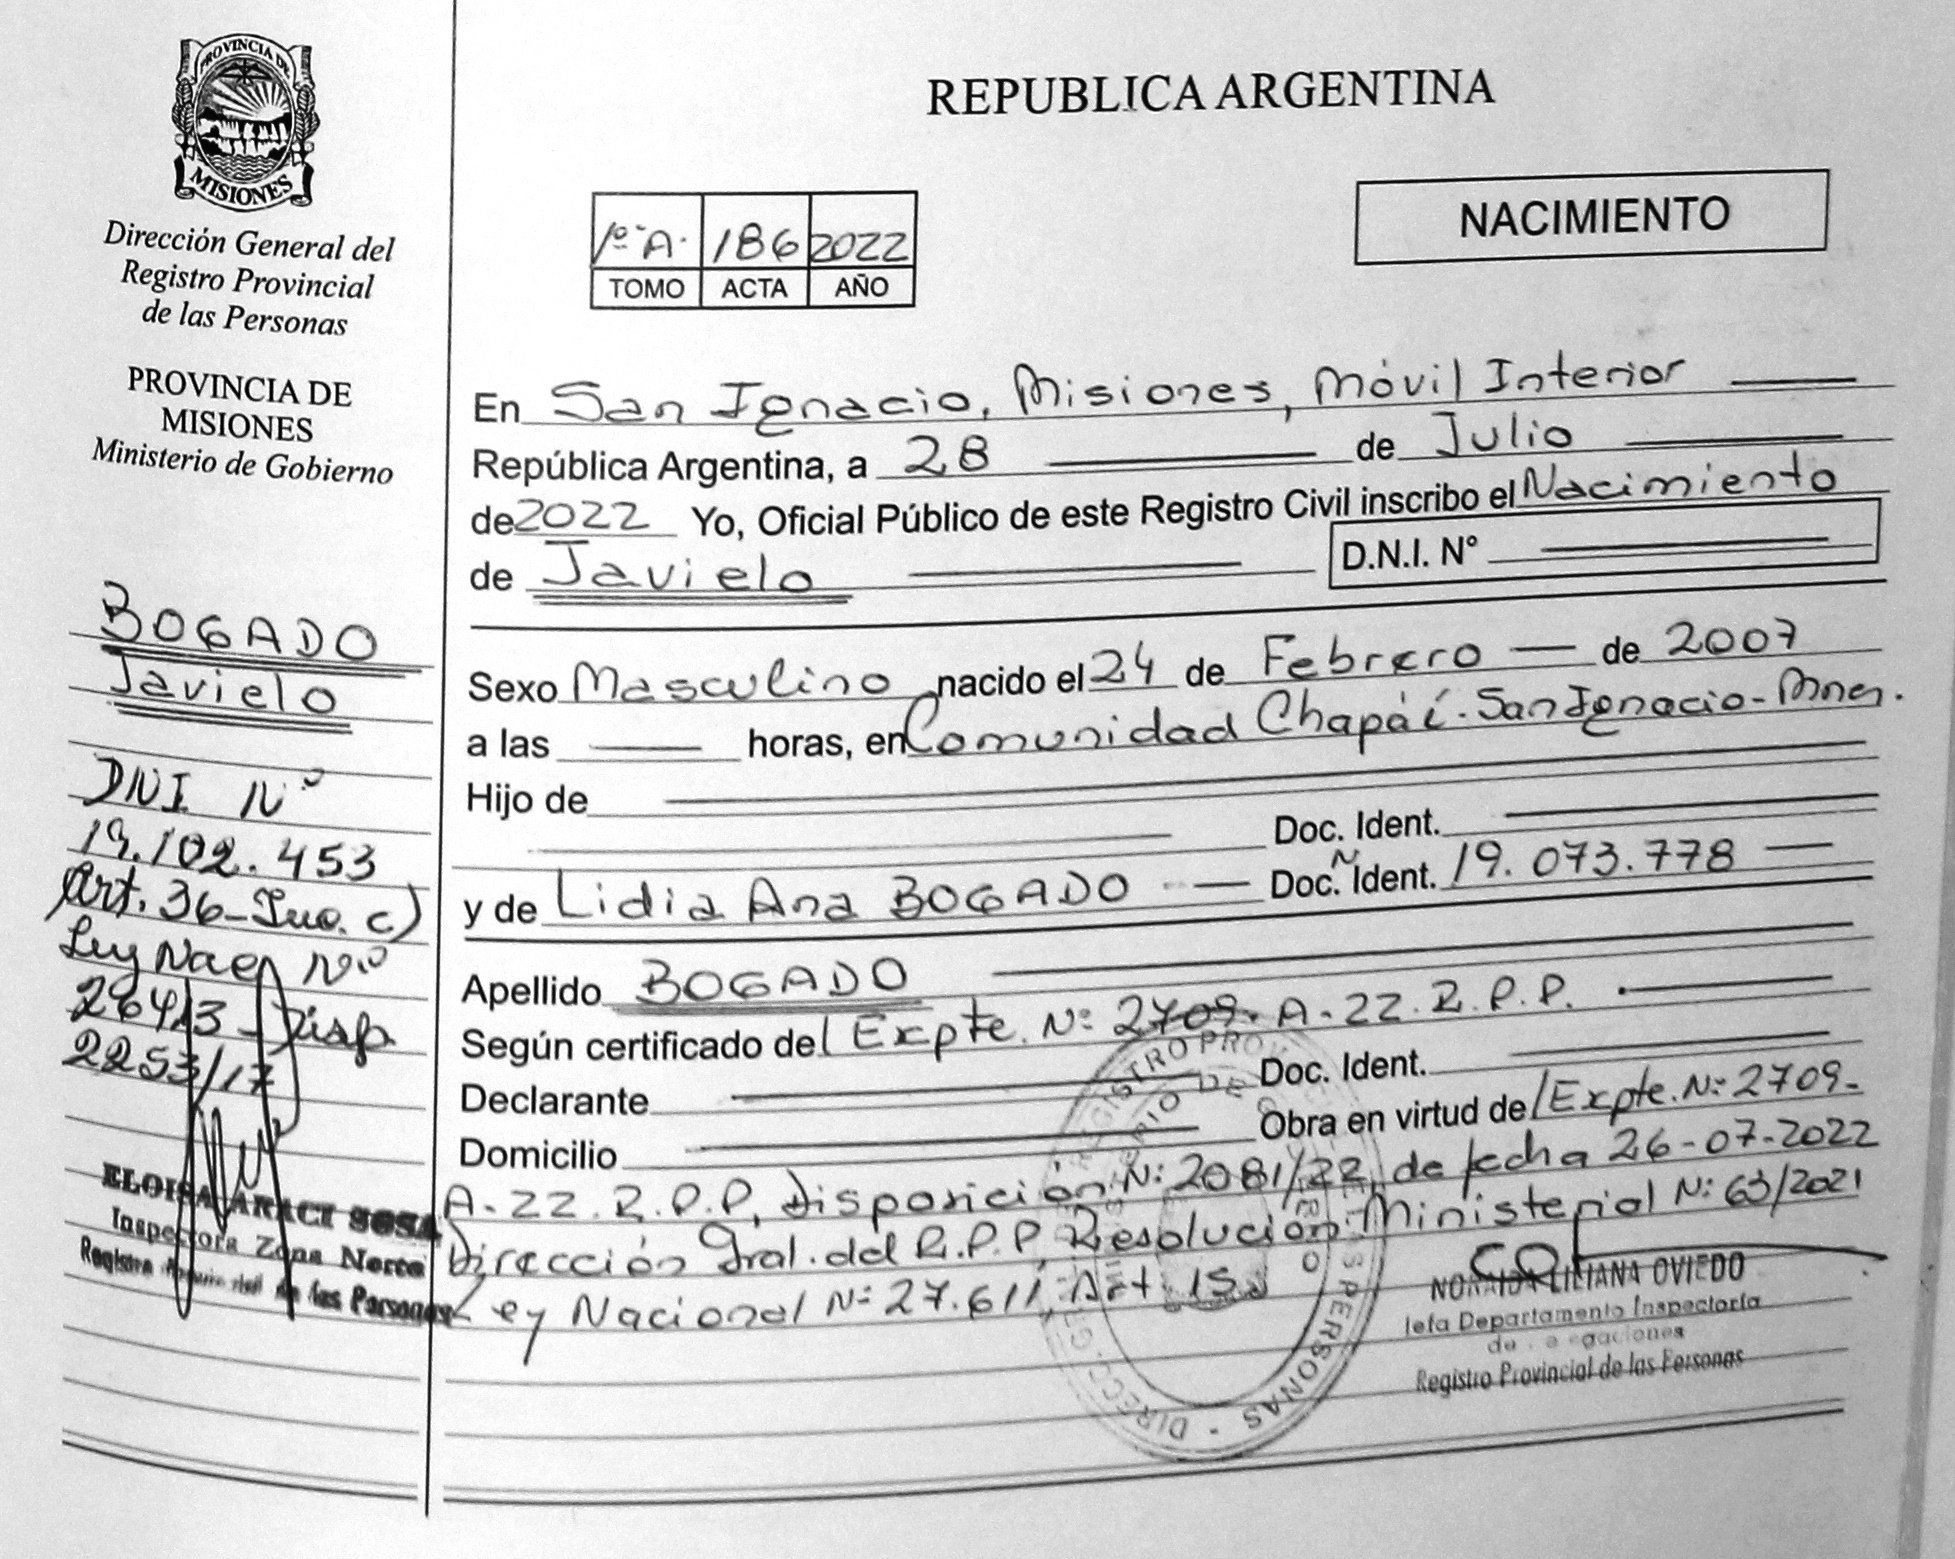 PROVINCIA DE
MISIONES
Dirección General del
Registro Provincial
de las Personas
PROVINCIA DE
MISIONES
Ministerio de Gobierno
BOGADO
Javielo
DNI Nº
19.102.453
Art. 36-Inc. c)
Ley Nac Nº
26413-Disp
2253/17
ELOISA ARACI SOSA
Inspectora Zona Norte
Registro Provincial de las Personas
REPUBLICA ARGENTINA
NACIMIENTO
1º"A" 186 2022
TOMO ACTA AÑO
En San Ignacio, Misiones, Móvil Interior
República Argentina, a 28 de Julio
de 2022 Yo, Oficial Público de este Registro Civil inscribo el Nacimiento
de Javielo D.N.I. N°
Sexo Masculino nacido el 24 de Febrero de 2007
a las horas, en Comunidad Chapáí-San Ignacio-Mnes.
Hijo de
Doc. Ident.
y de Lidia Ana BOGADO Doc. Ident. Nº 19.073.778
Apellido BOGADO
Según certificado del Expte. Nº 2709-A-22.R.P.P.
Declarante Doc. Ident.
Domicilio Obra en virtud del Expte. Nº 2709-
A-22.R.P.P, Disposición Nº 2081/22, de fecha 26-07-2022
Dirección Gral. del R.P.P Resolución Ministerial Nº 63/2021
Ley Nacional Nº 27.611 Art.
NORAIDA LILIANA OVIEDO
Jefa Departamento Inspectoría
Registro Provincial de las Personas